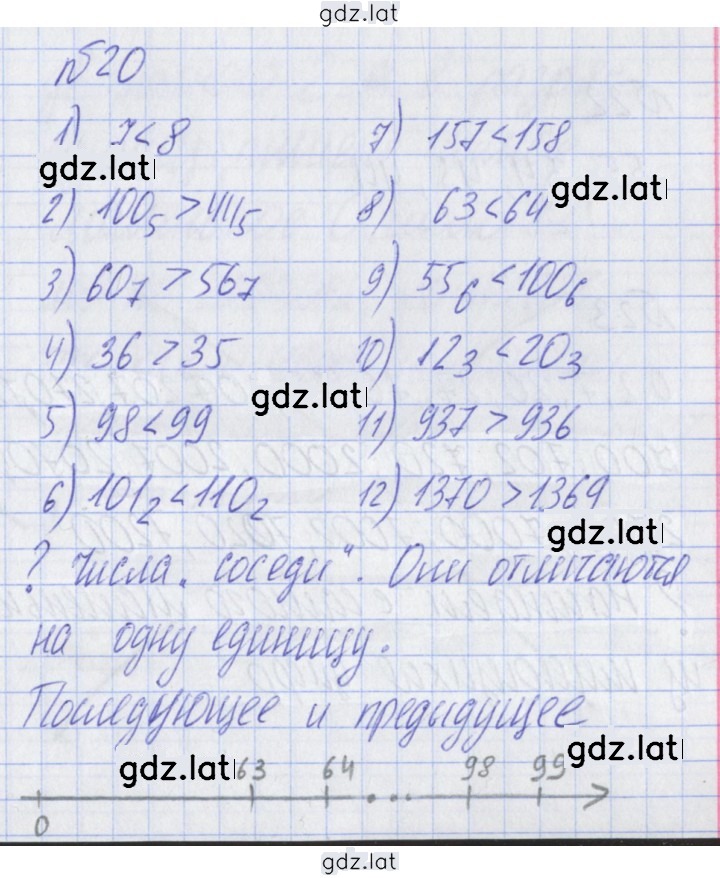 gdz.lat
№20
1) 7<8 7) 157<158
gdz.lat gdz.lat
2) 100₅>44₅ 8) 63<64
3) 60₇>56₇ 9) 55₆<100₆
4) 36>35 10) 12₃<20₃
gdz.lat
5) 98<99 11) 937>936
6) 101₂<110₂ 12) 1370>1369
gdz.lat
? Числа „соседи“. Они отличаются
на одну единицу.
Последующее и предыдущее
gdz.lat gdz.lat
63 64 98 99
0
gdz.lat